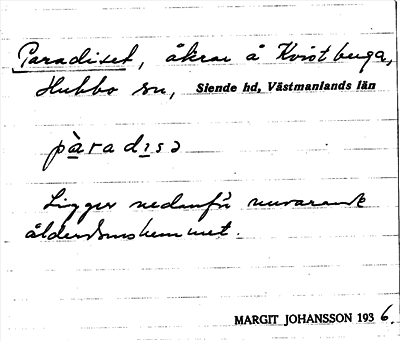 Paradiset, åkrar å Kvistberga,
Hubbo sn, Siende hd, Västmanlands län
pàradi̱sə
Ligger nedanför nuvarande
ålderdomshemmet.
MARGIT JOHANSSON 1936.